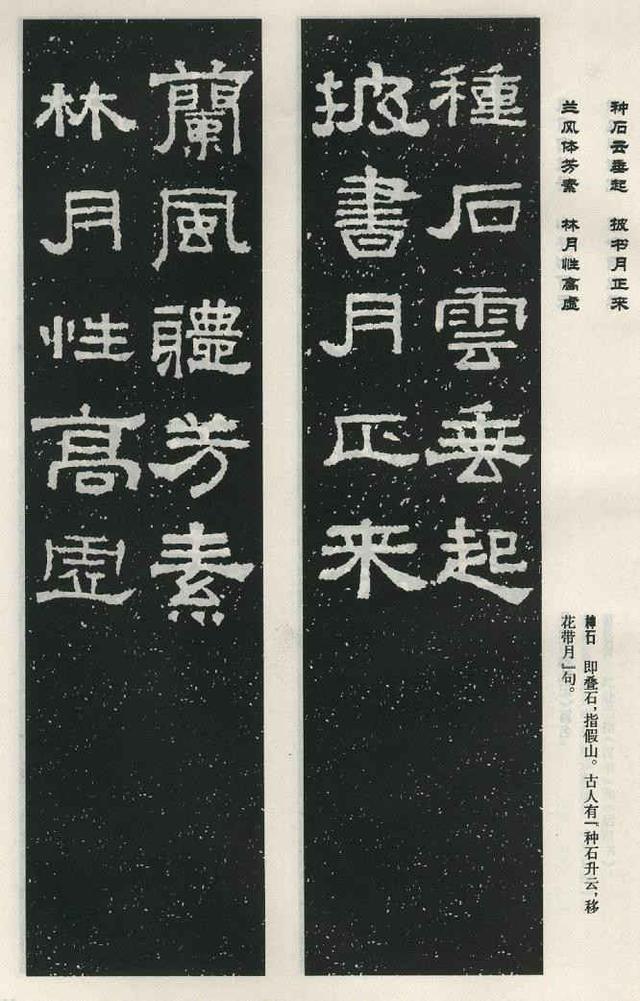 种石云垂起　披书月正来
兰风体芳素　林月性高虚
种石　即叠石，指假山。古人有『种石升云，移
花带月』句。
種石雲垂起
披書月正来
蘭風體芳素
林月性高虛